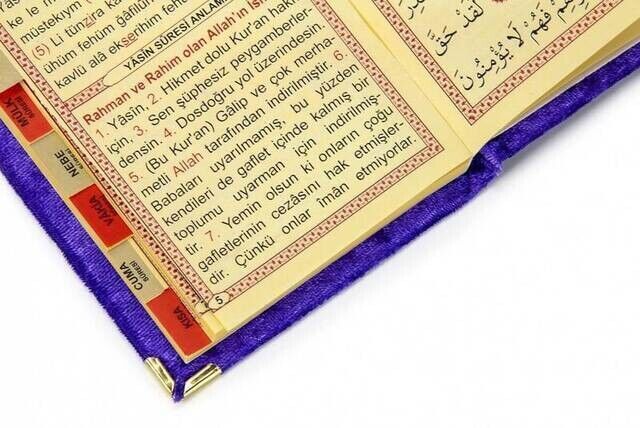 ke le m
müstekıym
(5) Li tünzira ka
ühüm fehüm ğâfilûn
kavlü alâ ekserihim feh
YASİN SÛRESİ ANLAMI
Rahman ve Rahim olan Allah'ın is
1. Yâsîn, 2. Hikmet dolu Kur'an hakkı
için, 3. Sen şüphesiz peygamberler-
densin. 4. Dosdoğru yol üzerindesin.
5. (Bu Kur'an) Gâlip ve çok merha-
metli Allah tarafından indirilmiştir. 6.
Babaları uyarılmamış, bu yüzden
kendileri de gaflet içinde kalmış bir
toplumu uyarman için indirilmiş-
tir. 7. Yemin olsun ki onların çoğu
gafletlerinin cezâsını hak etmişler-
dir. Çünkü onlar îmân etmiyorlar.
5
لَقَدْ حَقَّ
فَهُمْ لَا يُؤْمِنُونَ
MÜLK
SÛRESİ
NEBE
VAKIA
CUMA
SÛRESİ
KISA